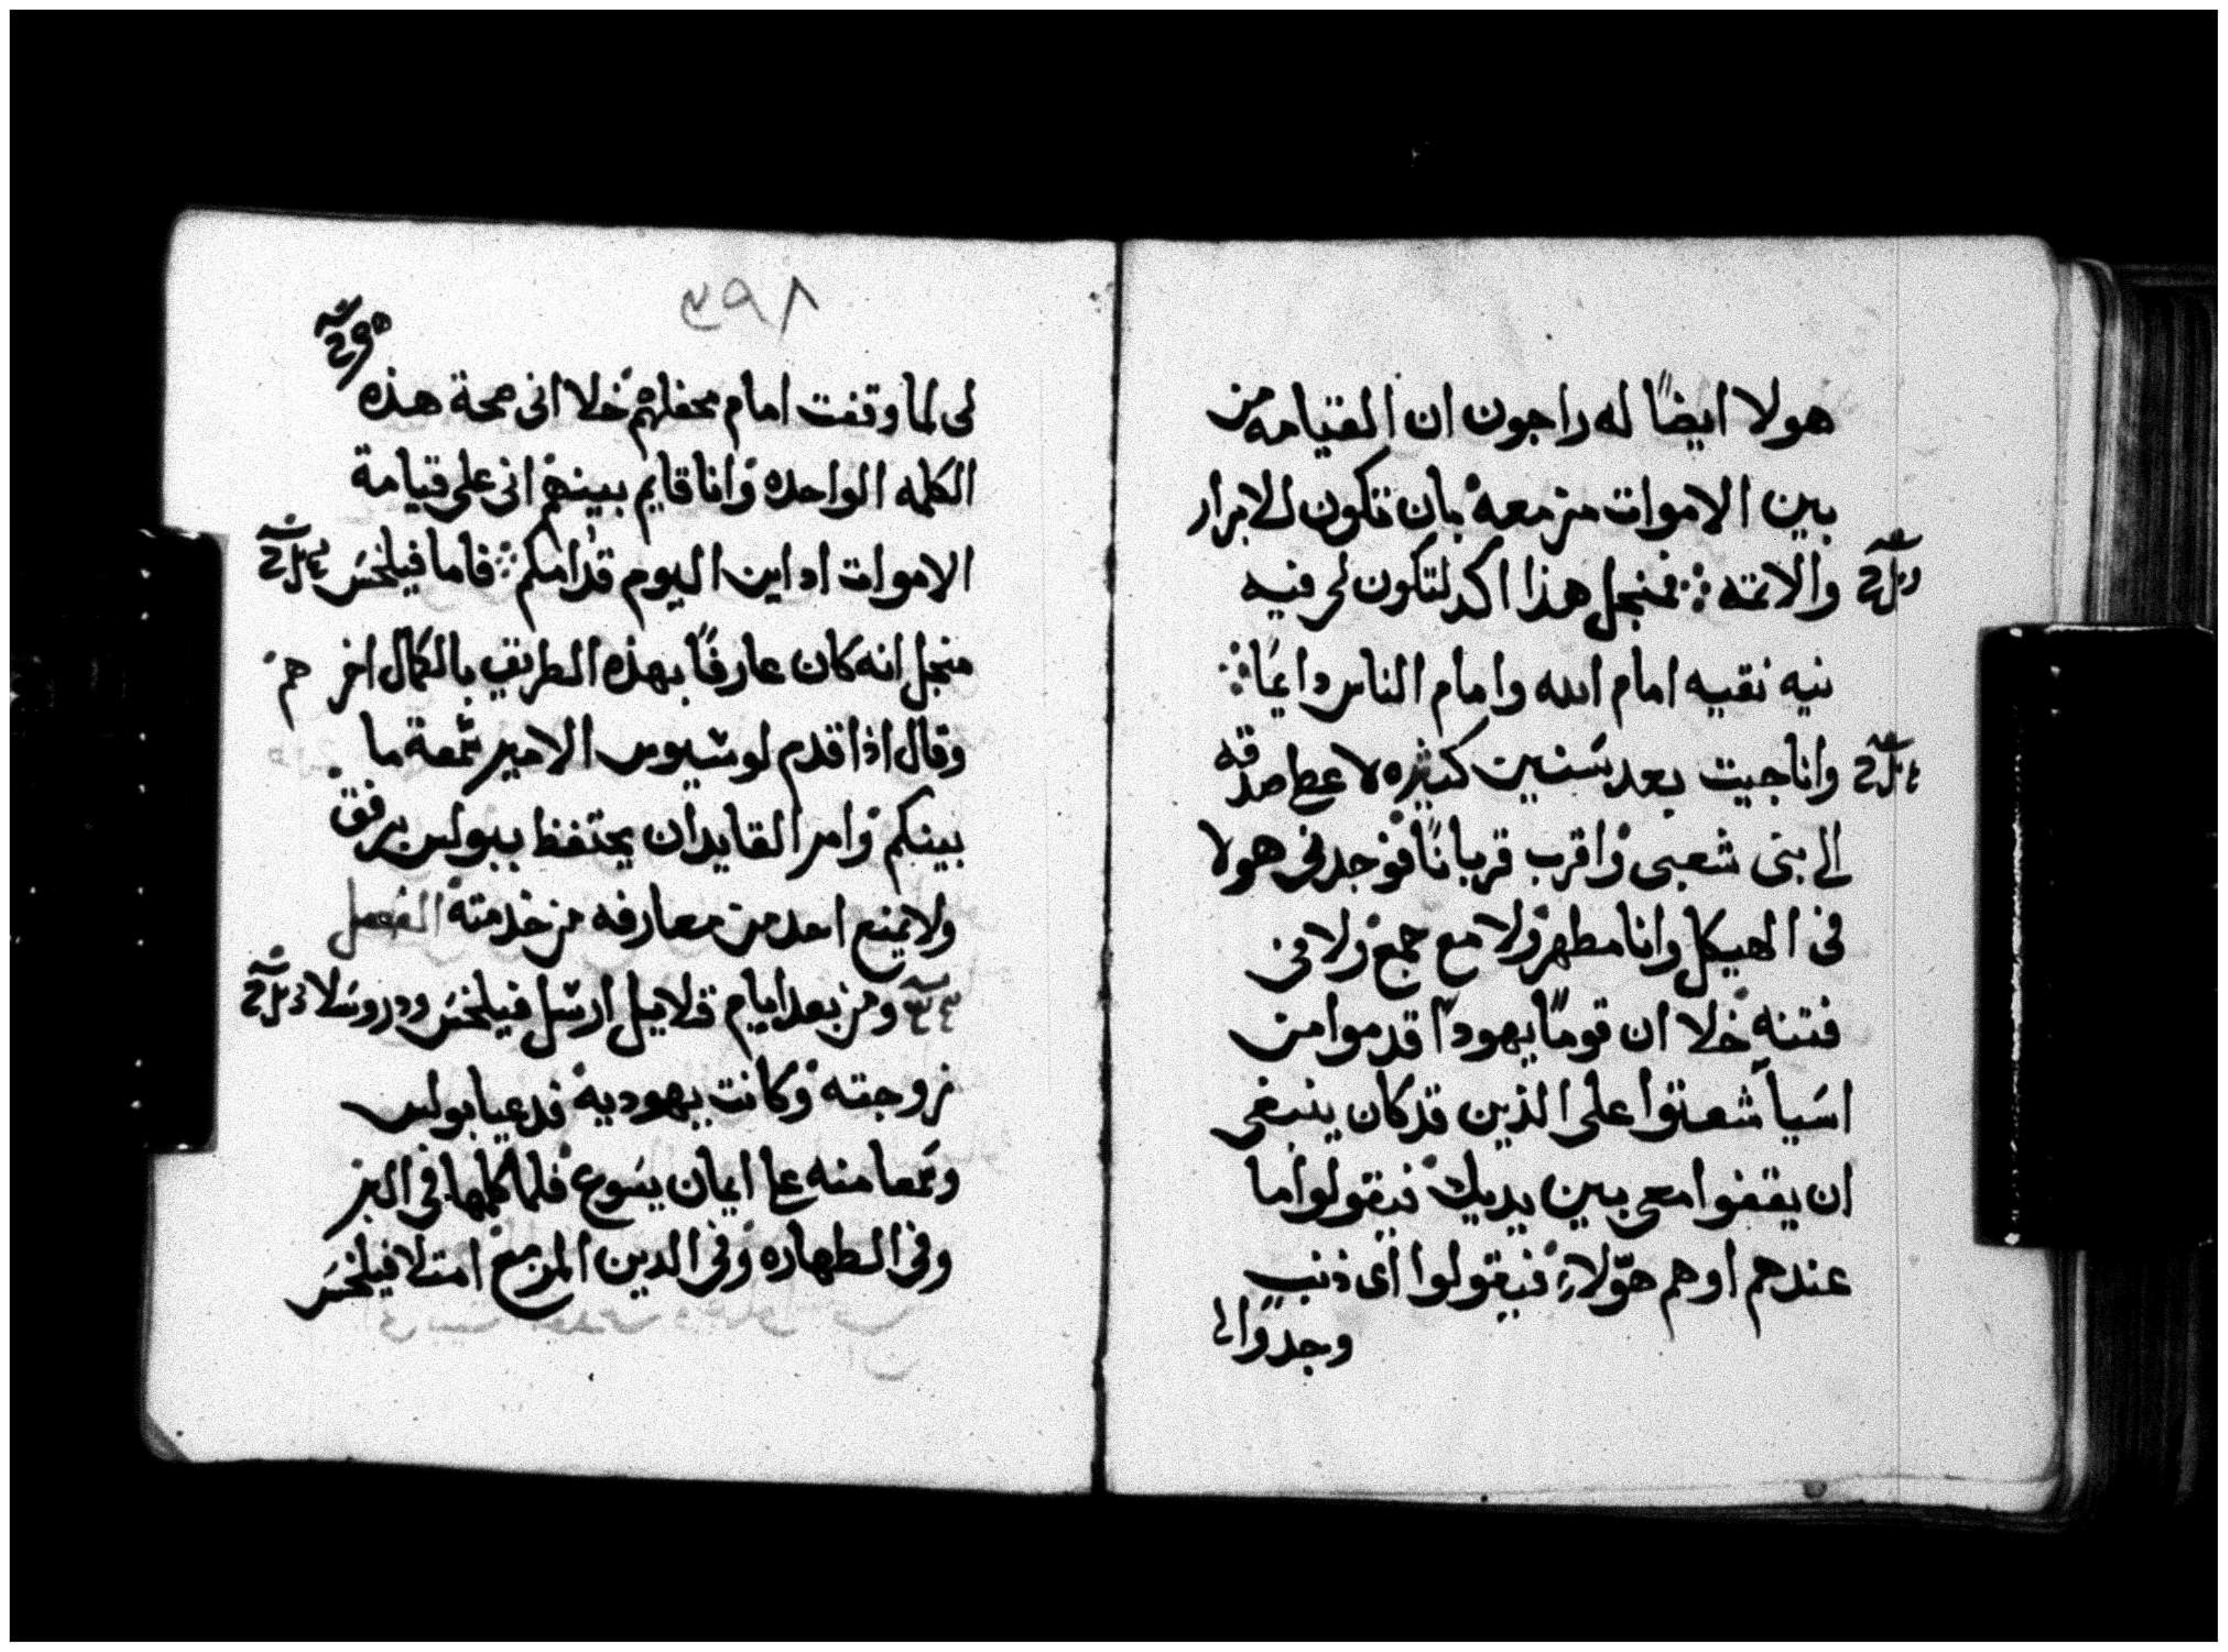 هولا ايضًا له راجون ان القيامه من
بين الاموات مزمعه بان تكون للابرار
والاثمه فمنجل هذا اكد لتكون لى فيه
نيه نقيه امام الله وامام الناس دايمًا
وانا جيت بعد سنين كثيره لاعطى صدقه
الى بنى شعبى واقرب قربانًا فوجدنى هولا
فى الهيكل وانا مطهر ولا مع جمع ولا فى
فتنه خلا ان قومًا يهودًا قدموا من
اسيا شعثوا على الذين قد كان ينبغى
ان يقفوا معى بين يديك فيقولوا ما
عندهم او هم هؤلاء فيقولوا اى ذنب
وجدوا لى
٣٩٨
لى لما وقفت امام محفلهم خلا انى صحة هذه
الكلمه الواحده وانا قايم بينهم انى على قيامة
الاموات اداين اليوم قدامكم فاما فيلخس
منجل انه كان عارفًا بهذه الطريق بالكمال اخرهم
وقال اذا قدم لوسيوس الامير سمعة ما
بينكم وامر القايد ان يحتفظ ببولس برفق
ولا يمنع احد من معارفه من خدمته الفصل
ومن بعد ايام قلايل ارسل فيلخس ودروسلا
زوجته وكانت يهوديه فدعيا بولس
وسمعا منه على ايمان يسوع فلما كلمها فى البر
وفى الطهاره وفى الدين المزمع امتلا فيلخس